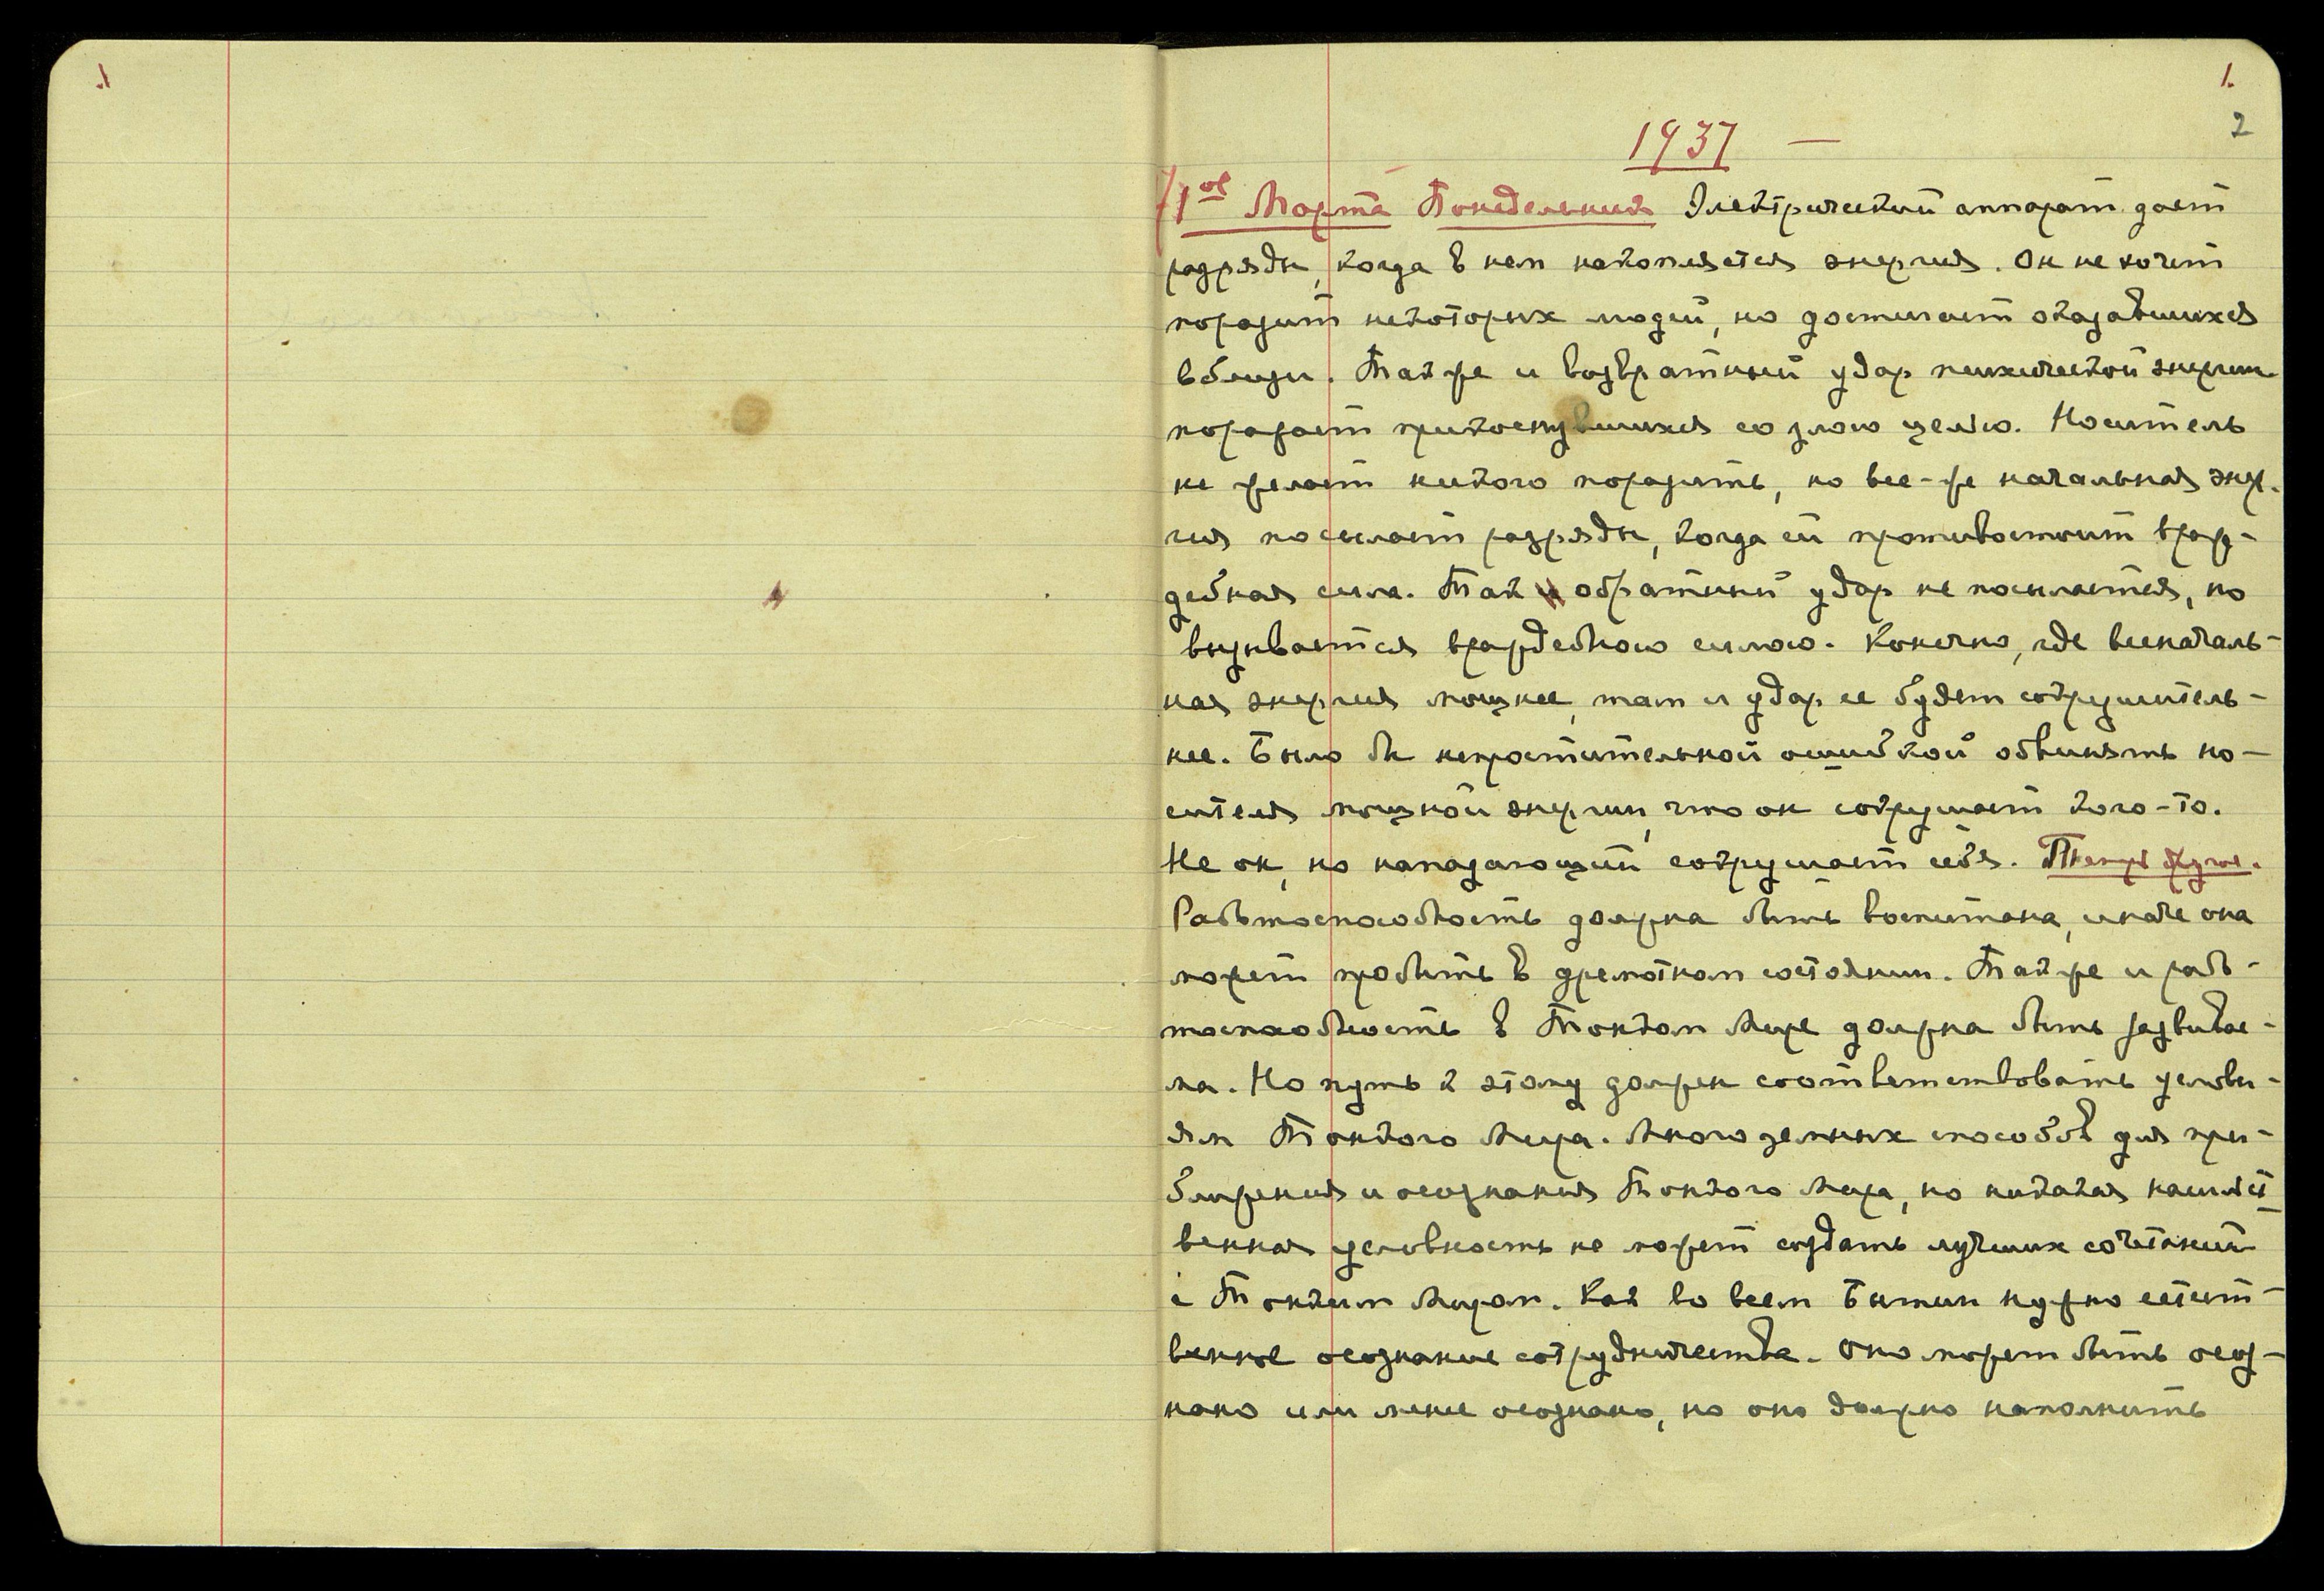 1.
2
1937 —
1ое Марта Понедельник Электрический аппарат дает
разряды, когда в нем накопляется энергия. Он не хочет
поразит некоторых людей, но достигает оказавшихся
вблизи. Также и возвратный удар психической энергии
поражает прикоснувшихся со злою целью. Носитель
не желает никого поразить, но все-же начальная энер-
гия посылает разряды, когда ей противостоит враж-
дебная сила. Так обратный удар не посылается, но
вызывается враждебною силою. Конечно, где всеначаль-
ная энергия мощнее, там и удар ее будет сокрушитель-
нее. Было бы непростительной ошибкой обвинять но-
сителя мощной энергии, что он сокрушает кого-то.
Не он, но нападающий сокрушает себя.
Работоспособность должна быть воспитана, иначе она
может пробыть в дремотном состоянии. Также и рабо-
тоспособность в Тонком Мире должна быть развивае-
ма. Но путь к этому должен соответствовать услови-
ям Тонкого Мира. Много земных способов для при-
ближения и осознания Тонкого Мира, но никакая насильст
венная условность не может создать лучших сочетаний
с Тонким Миром. Как во всем Бытии нужно естест-
венное осознание сотрудничества. Оно может быть осоз-
нано или менее осознано, но оно должно наполнить